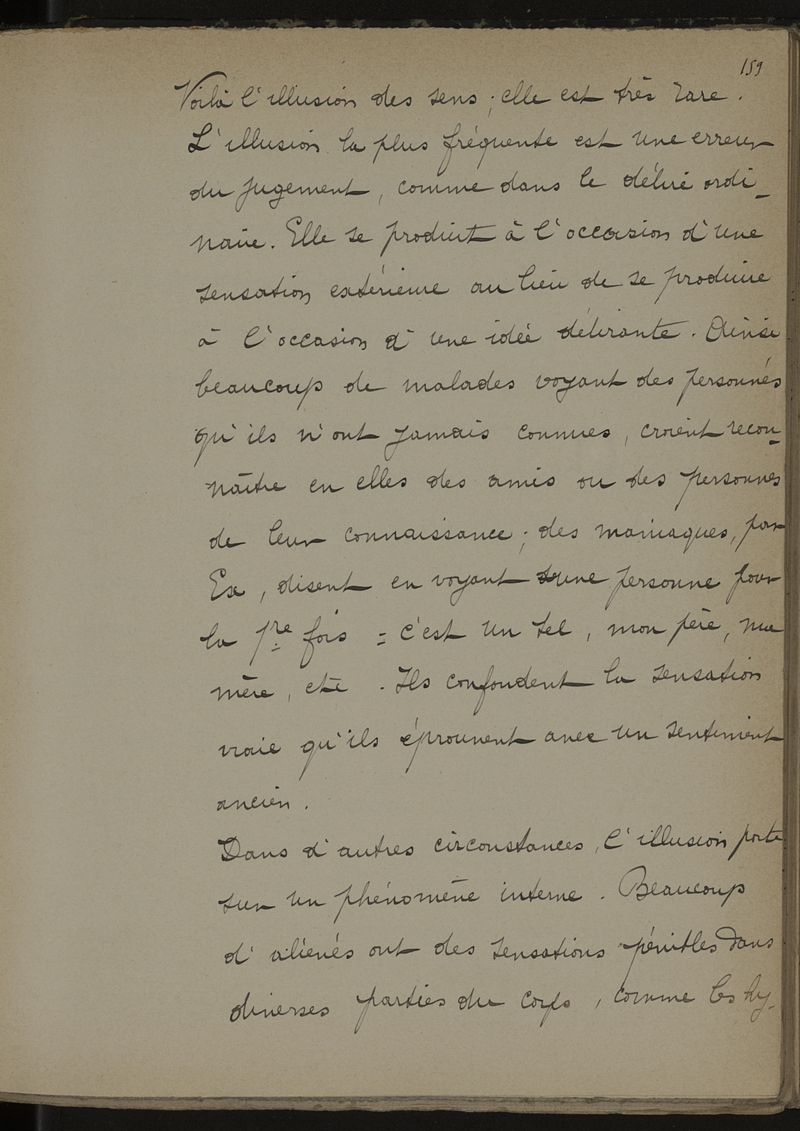 159
Voilà l'illusion des sens ; elle est très rare.
L'illusion la plus fréquente est une erreur
du jugement, comme dans le délire ordi-
naire. Elle se produit à l'occasion d'une
sensation extérieure au lieu de se produire
à l'occasion d'une idée délirante. Ainsi
beaucoup de malades voyant des personnes
qu'ils n'ont jamais connues, croient recon-
naître en elles des amis ou des personnes
de leur connaissance ; des maniaques, par
Ex, disent en voyant une personne pour
la 1re fois = c'est un tel, mon père, ma
mère, etc. Ils confondent la sensation
vraie qu'ils éprouvent avec un sentiment
ancien.
Dans d'autres circonstances, l'illusion porte
sur un phénomène interne. Beaucoup
d'aliénés ont des sensations pénibles dans
diverses parties du corps, comme les hy-